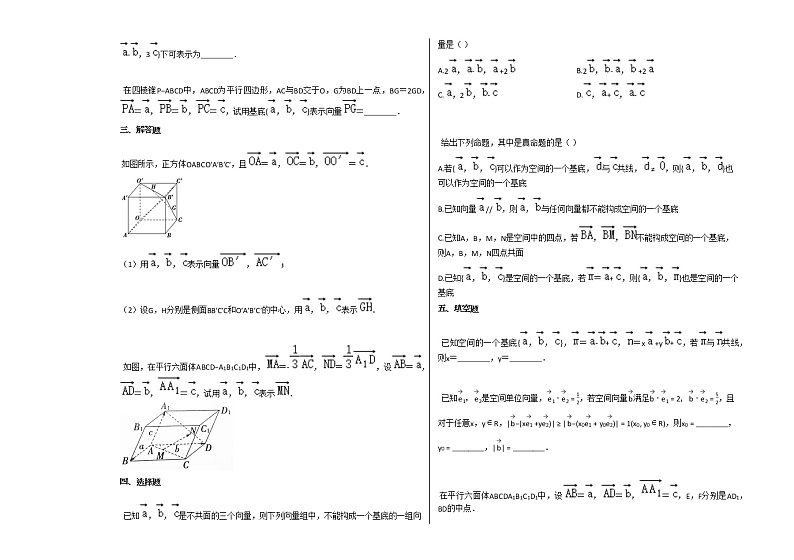 a⃗-b⃗，3c⃗}下可表示为________．
在四棱锥P-ABCD中，ABCD为平行四边形，AC与BD交于O，G为BD上一点，BG＝2GD，
PA⃗＝a⃗，PB⃗＝b⃗，PC⃗＝c⃗，试用基底{a⃗，b⃗，c⃗}表示向量PG⃗＝________．
三、解答题
如图所示，正方体OABCO'A'B'C'，且OA⃗＝a⃗，OC⃗＝b⃗，OO'⃗＝c⃗．
O' C' H A' B' G O C A B
（1）用a⃗，b⃗，c⃗表示向量OB'⃗，AC'⃗；
（2）设G，H分别是侧面BB'C'C和O'A'B'C'的中心，用a⃗，b⃗，c⃗表示GH⃗．
如图，在平行六面体ABCD-A₁B₁C₁D₁中，MA⃗=-1/3AC⃗，ND⃗=1/3A₁D⃗，设AB⃗＝a⃗，
AD⃗＝b⃗，AA₁⃗＝c⃗，试用a⃗，b⃗，c⃗表示MN⃗．
A₁ D₁ B₁ C₁ c N a A b D B M C
四、选择题
已知a⃗，b⃗，c⃗是不共面的三个向量，则下列向量组中，不能构成一个基底的一组向
量是（ ）
A.2a⃗，a⃗-b⃗，a⃗+2b⃗ B.2b⃗，b⃗-a⃗，b⃗+2a⃗
C.a⃗，2b⃗，b⃗-c⃗ D.c⃗，a⃗+c⃗，a⃗-c⃗
给出下列命题，其中是真命题的是（ ）
A.若{a⃗，b⃗，c⃗}可以作为空间的一个基底，d⃗与c⃗共线，d⃗≠0⃗，则{a⃗，b⃗，d⃗}也
可以作为空间的一个基底
B.已知向量a⃗//b⃗，则a⃗，b⃗与任何向量都不能构成空间的一个基底
C.已知A，B，M，N是空间中的四点，若BA⃗，BM⃗，BN⃗不能构成空间的一个基底，
则A，B，M，N四点共面
D.已知{a⃗，b⃗，c⃗}是空间的一个基底，若m⃗＝a⃗+c⃗，则{a⃗，b⃗，m⃗}也是空间的一个
基底
五、填空题
已知空间的一个基底{a⃗，b⃗，c⃗}，m⃗＝a⃗-b⃗+c⃗，n⃗＝xa⃗+yb⃗+c⃗，若m⃗与n⃗共线，
则x＝________，y＝________．
已知e⃗₁，e⃗₂是空间单位向量，e⃗₁·e⃗₂＝1/2，若空间向量b⃗满足b⃗·e⃗₁＝2，b⃗·e⃗₂＝5/2，且
对于任意x，y∈R，|b⃗-(xe⃗₁+ye⃗₂)|≥|b⃗-(x₀e⃗₁+y₀e⃗₂)|＝1(x₀, y₀∈R)，则x₀＝________，
y₀＝________，|b⃗|＝________．
在平行六面体ABCDA₁B₁C₁D₁中，设AB⃗＝a⃗，AD⃗＝b⃗，AA₁⃗＝c⃗，E，F分别是AD₁，
BD的中点．